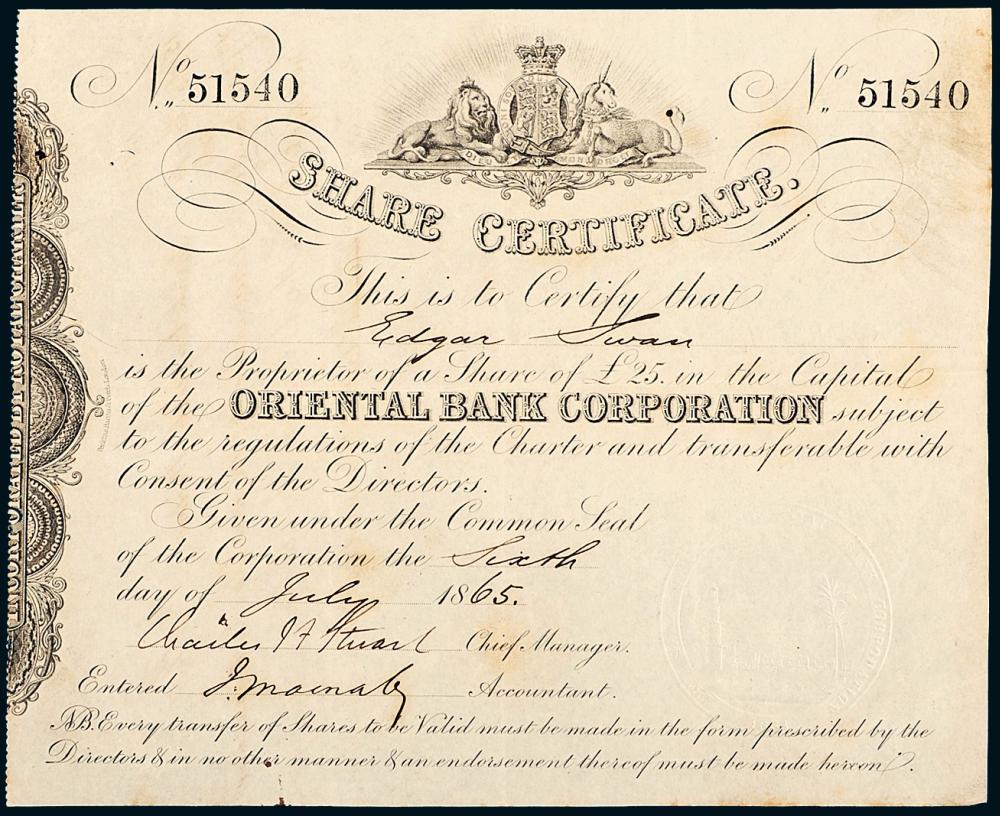 No. 51540
No. 51540
DIEU ET MON DROIT
SHARE CERTIFICATE.
This is to Certify that
Edgar Swan
is the Proprietor of a Share of £25. in the Capital
of the ORIENTAL BANK CORPORATION subject
to the regulations of the Charter and transferable with
Consent of the Directors.
Given under the Common Seal
of the Corporation the Sixth
day of July 1865.
Charles J F Stuart Chief Manager.
Entered Accountant.
N.B. Every transfer of Shares to be Valid must be made in the form prescribed by the
Directors & in no other manner & an endorsement thereof must be made hereon.
INCORPORATED BY ROYAL CHARTER